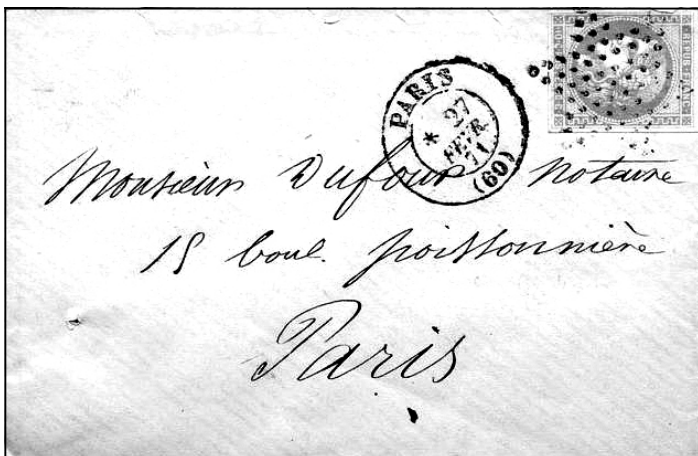 PARIS
* 27
FEVR.
71
(60)
Monsieur Dufour notaire
15 boul. poissonnière
Paris